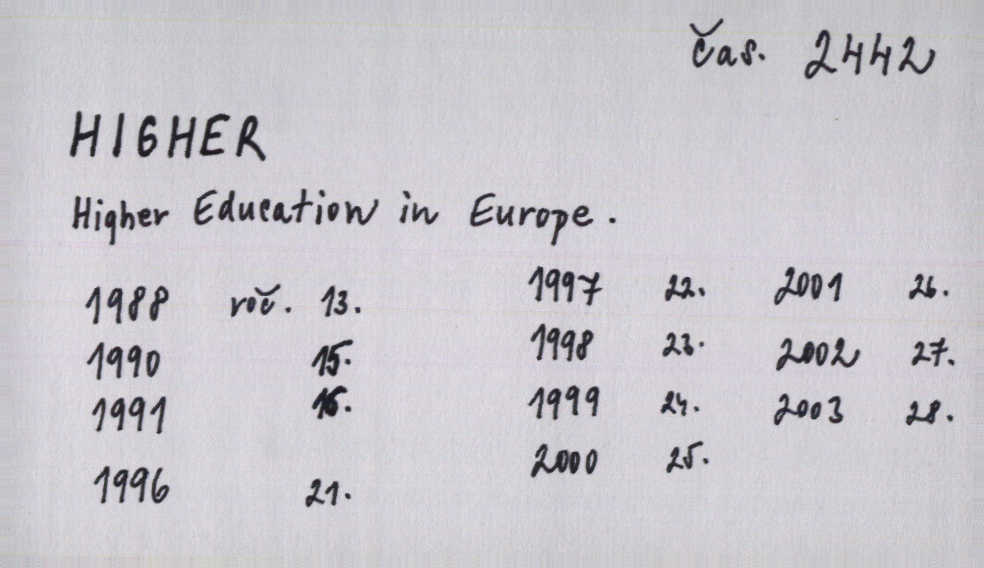 čas. 2442
HIGHER
Higher Education in Europe.
1988 roč. 13.
1990 15.
1991 16.
1996 21.
1997 22.
1998 23.
1999 24.
2000 25.
2001 26.
2002 27.
2003 28.